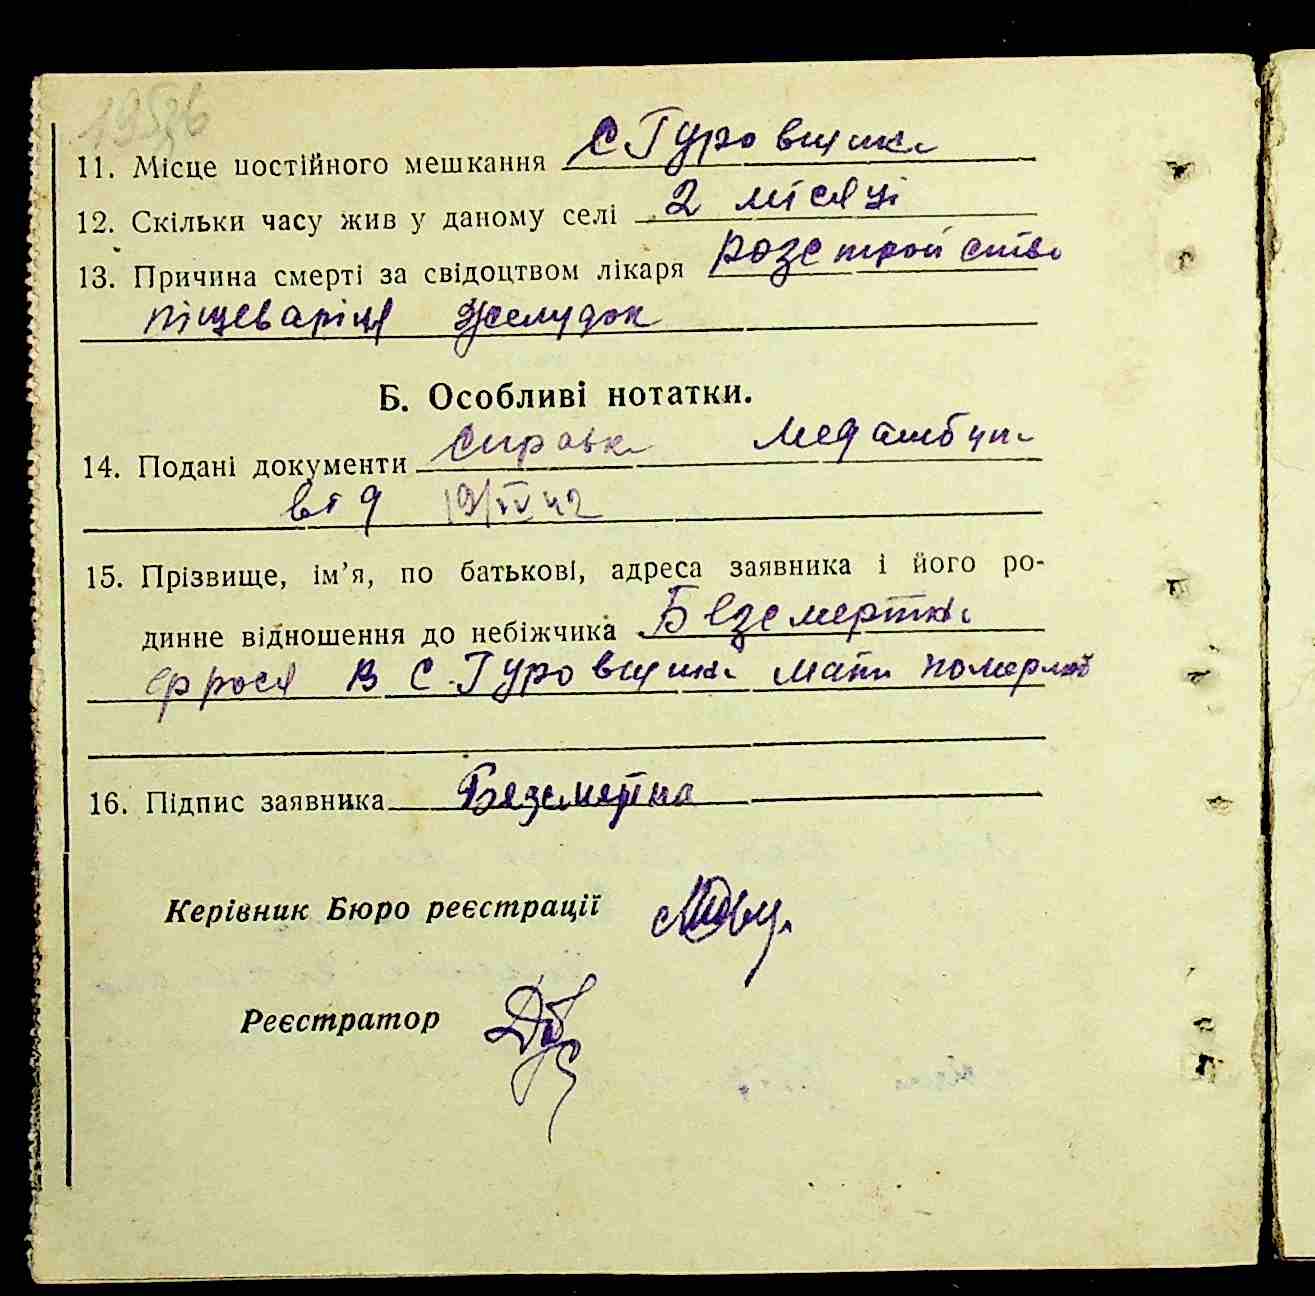 11. Місце постійного мешкання с Гуровщина
12. Скільки часу жив у даному селі 2 місяці
13. Причина смерті за свідоцтвом лікаря розстройство
піщеваріня желудок
Б. Особливі нотатки.
14. Подані документи справка медамбул.
від 19/IV 42
15. Прізвище, ім’я, по батькові, адреса заявника і його ро-
динне відношення до небіжчика Безсмертна
фрося в с. Гуровщина мати померлої
16. Підпис заявника Безсмертна
Керівник Бюро реєстрації
Реєстратор